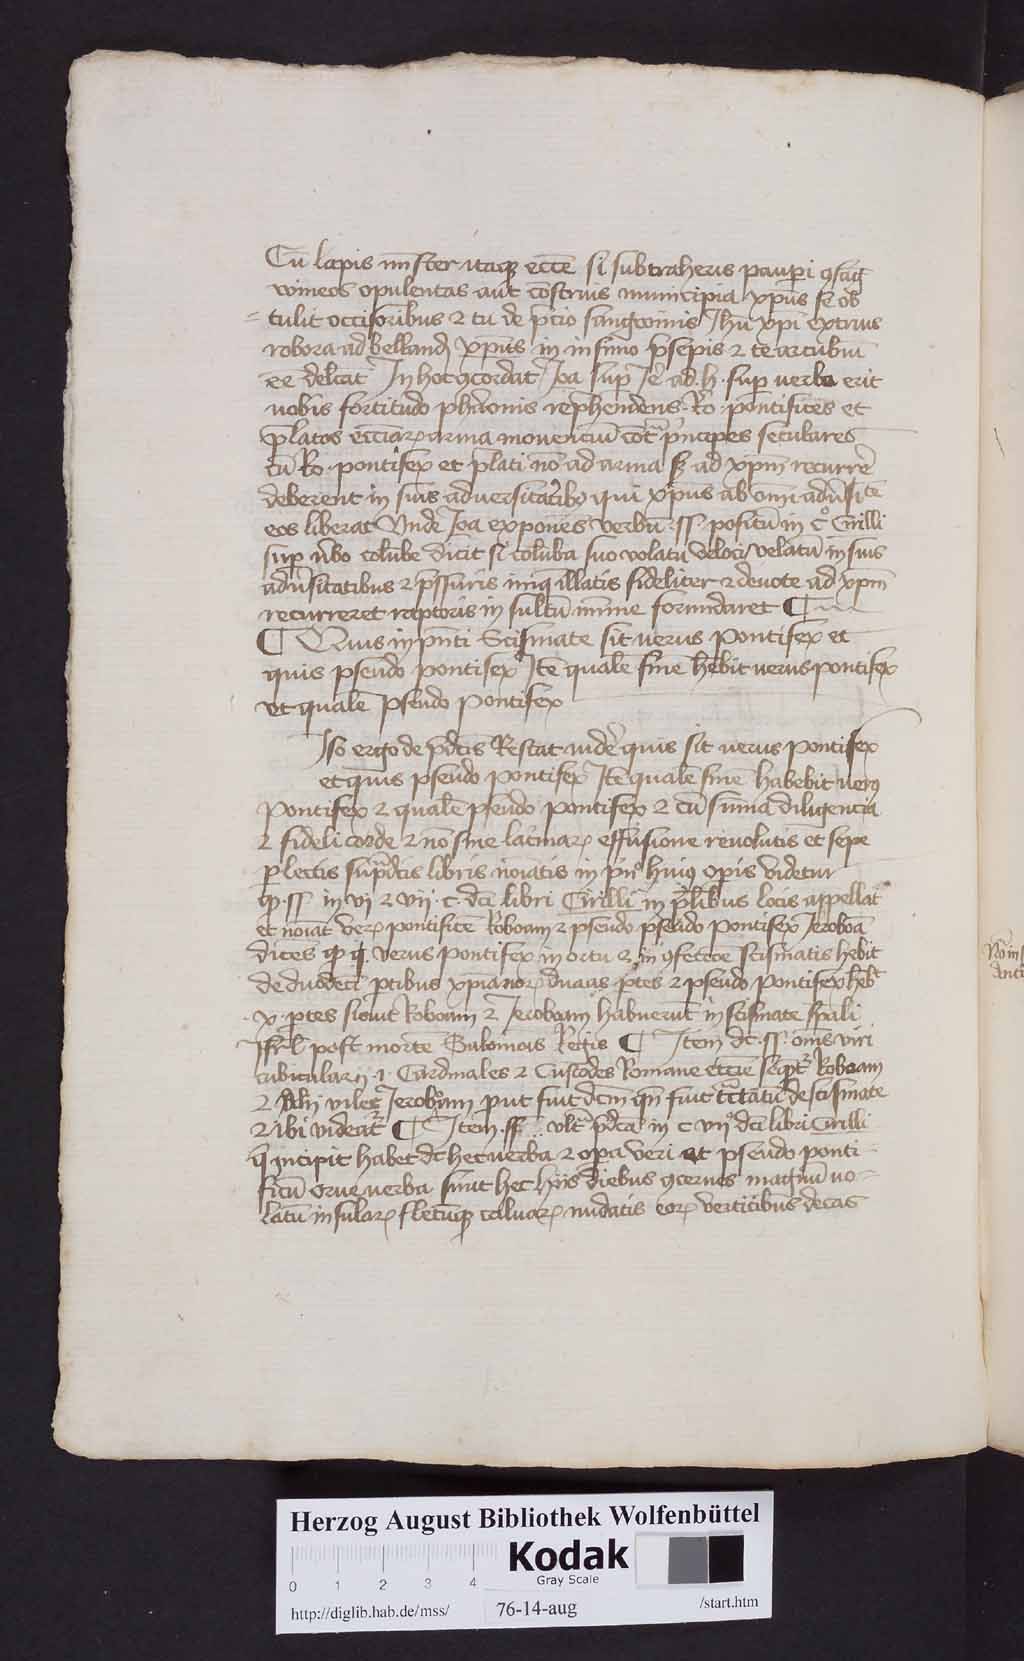 Cū lapis mīster itaqȝ eccē si subtraheris paupi
vineos opulentas aut cōstruis municipia xp̄us se ob
tulit occisoribus ⁊ tu de p̄cio sangwinis Ih̄u xp̄i extruis
robora ad belland xp̄us in infimo p̄sepis ⁊ te
ee delcāt In hoc ꝯcordat Joa sup Je ad .h. sup verba erit
vobis fortitudo pharonis rep̄hendens Ro. pontifices et
p̄latos ecciaꝝ arma movenciū cōt̄ p̄ncipes seculares
cū Ro. pontifex et p̄lati nō ad arma sȝ ad xp̄m recurre
deberent in suis adversitatibꝯ qui xp̄us ab om̄i adūsite
eos liberat Vnde Joa exponēs verbū ss. positū in c° Cirilli
sup v̄bo colūbe dicit si colūba suo volatu veloci velatū in suis
adūsitatibus ⁊ p̄ssuris iniqȝ illatis fideliter ⁊ devote ad xp̄m
recurreret raptoris in sultū mīme formidaret ¶
¶ Quis in p̄nti Scismate sit verus Pontifex et
quis pseudo pontifex Itē quale fine hēbit verus pontifex
et qualē pseudo pontifex
Iso ergo de p̄dcis Restat vidē quis sit verus pontifex
et quis pseudo pontifex Itē qualē finē habebit verꝯ
pontifex ⁊ qualē pseudo pontifex ⁊ cū suma diligencia
⁊ fideli corde ⁊ nō sine lac̄maꝝ effusione revolutis et sepe
plectis sup̄dcis libris noīatis in p̄n° huiꝯ opis videtur
ꝙ ss in vj ⁊ vij .c. dci libri Cirilli in p̄lībus locis appellat
et noīat verꝫ pontificē Roboam ⁊ pseudo pseudo pontifex Jeroboā
dicēs ꝙ verus pontifex in ortu ⁊ in ꝯfectōe scismatis hēbit
de duodeci ptibus xp̄ianoꝝ duas ptes ⁊ pseudo pontifex hēbt
.x. ptes sicut Roboam ⁊ Jeroboam habuerūt in scismate
Isrl post mortē Salomōis Regis ¶ Item dc .ss. om̄s viri
cubicularij .i. Cardinales ⁊ Custodes Romane eccie Roboam
⁊ viles Jeroboam put fuit dcm fuit de scismate
⁊ ibi videat̄ ¶ Item ss. p̄dca in c vij° dci libri Cirilli
q̄ incipit habet dc hec verba ⁊ opa veri et pseudo ponti
ficū verba sunt hec hijs diebus ꝯcernes magnū vo
latū insulaꝝ fletūqȝ calvaꝝ nudatis eoꝝ verticibus decas
Herzog August Bibliothek Wolfenbüttel
0 1 2 3 4
Kodak
Gray Scale
http://diglib.hab.de/mss/ 76-14-aug /start.htm